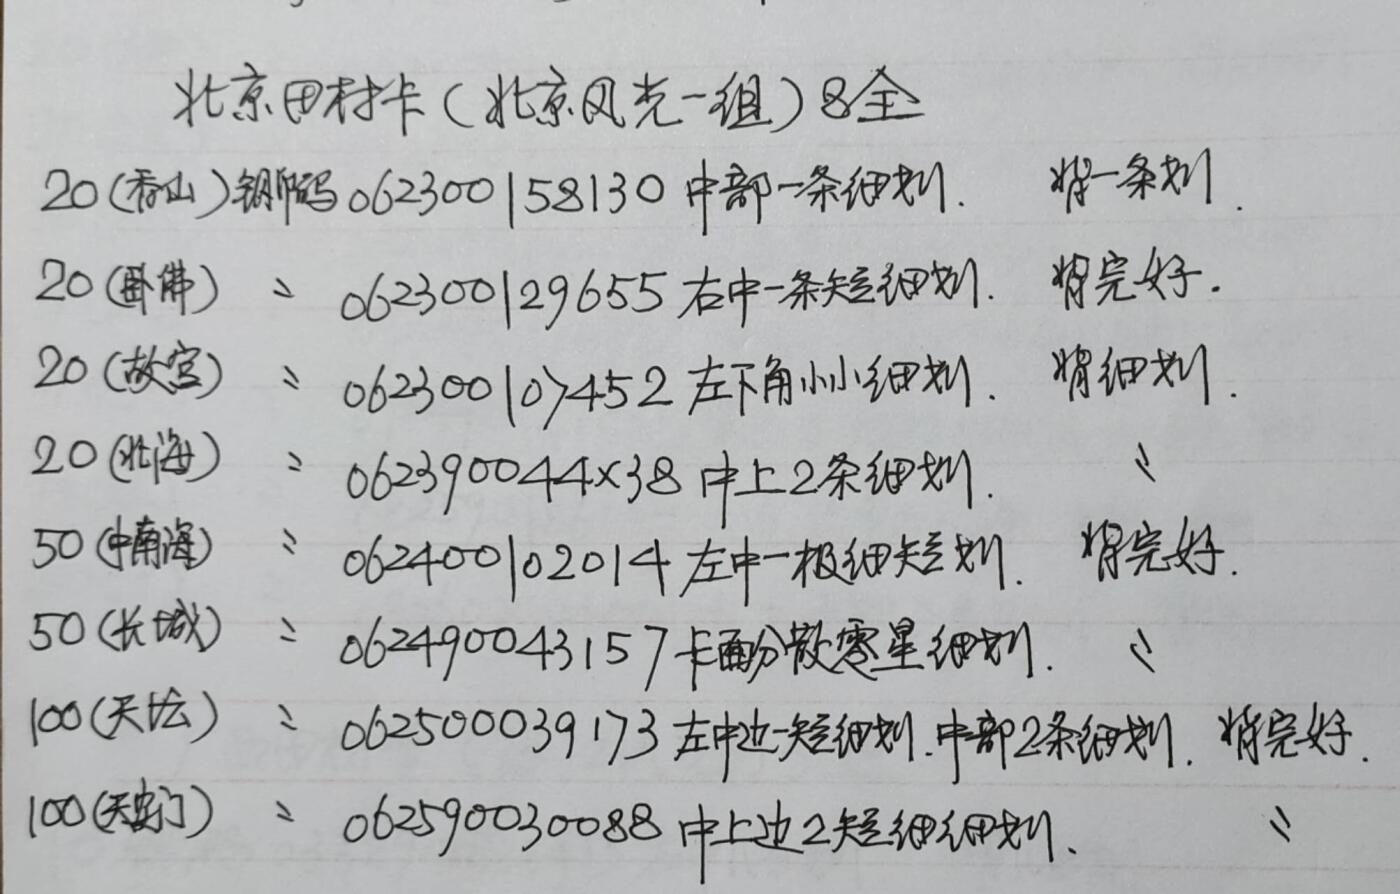 北京田村卡（北京风光一组）8全
20（香山）钢印码 062300158130 中部一条细划. 背一条划.
20（卧佛） 〃 062300129655 右中一条短细划. 背完好.
20（故宫） 〃 062300107452 左下角小小细划. 背细划.
20（北海） 〃 062390044×38 中上2条细划. 〃
50（中南海） 〃 062400102014 左中一极细短划. 背完好.
50（长城） 〃 062490043157 卡面分散零星细划. 〃
100（天坛） 〃 062500039173 左中边一短细划.中部2条细划. 背完好.
100（天安门） 〃 062590030088 中上边2短细细划. 〃